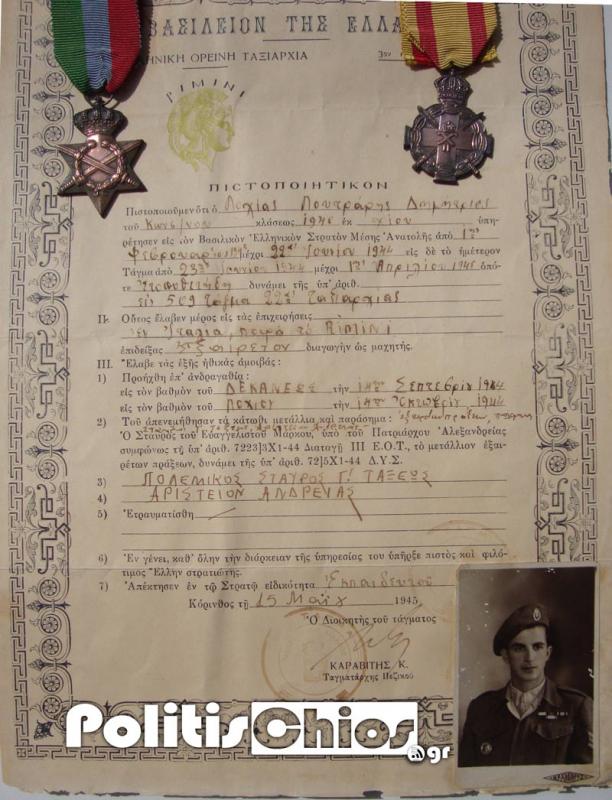 ΒΑΣΙΛΕΙΟΝ ΤΗΣ ΕΛΛΑ
ΗΝΙΚΗ ΟΡΕΙΝΗ ΤΑΞΙΑΡΧΙΑ
3ον
ΡΙΜΙΝΙ
ΠΙΣΤΟΠΟΙΗΤΙΚΟΝ
Πιστοποιοῦμεν ὅτι ὁ Λοχίας Δημήτριος
τοῦ Κων/νου κλάσεως 1940 ἐκ Χίου ὑπη-
ρέτησεν εἰς τὸν Βασιλικὸν Ἑλληνικὸν Στρατὸν Μέσης Ἀνατολῆς ἀπὸ
Φεβρουαρίου μέχρι 22α Ἰουνίου 1944 εἰς δὲ τὸ ἡμέτερον
Τάγμα ἀπὸ 23η Ἰουνίου 1944 μέχρι Ἀπριλίου 1945 ὁπό-
τε δυνάμει τῆς ὑπ' ἀριθ.
εἰς 509 Τάγμα 22α Ταξιαρχίας
II. Οὗτος ἔλαβεν μέρος εἰς τὰς ἐπιχειρήσεις
εἰς Ἰταλία, παρὰ τὸ Rimini
ἐπιδείξας ἐξαίρετον διαγωγὴν ὡς μαχητής.
III. Ἔλαβε τὰς ἑξῆς ἠθικὰς ἀμοιβάς:
1) Προήχθη ἐπ' ἀνδραγαθία:
εἰς τὸν βαθμὸν τοῦ ΔΕΚΑΝΕΩΣ τὴν 14ην Σεπτεβρίυ 1944
εἰς τὸν βαθμὸν τοῦ ΛΟΧΙΟΥ τὴν 14ην Ὀκτωβρίυ 1944
2) Τοῦ ἀπενεμήθησαν τὰ κάτωθι μετάλλια καὶ παράσημα:
Ὁ Σταυρὸς τοῦ Εὐαγγελιστοῦ Μάρκου, ὑπὸ τοῦ Πατριάρχου Ἀλεξανδρείας
συμφώνως τῇ ὑπ' ἀριθ. 7223]3Χ1-44 Διαταγῇ III Ε.Ο.Τ., τὸ μετάλλιον ἐξαι-
ρέτων πράξεων, δυνάμει τῆς ὑπ' ἀριθ. 72]5Χ1-44 Δ.Υ.Σ.
3) ΠΟΛΕΜΙΚΟΣ ΣΤΑΥΡΟΣ Γ! ΤΑΞΕΩΣ
4) ΑΡΙΣΤΕΙΟΝ ΑΝΔΡΕΙΑΣ
5) Ἐτραυματίσθη
6) Ἐν γένει, καθ' ὅλην τὴν διάρκειαν τῆς ὑπηρεσίας του ὑπῆρξε πιστὸς καὶ φιλό-
τιμος Ἕλλην στρατιώτης.
7) Ἀπέκτησεν ἐν τῷ Στρατῷ εἰδικότητα Ἐκπαιδευτοῦ
Κόρινθος τῇ 15 Μαΐου 1945
Ὁ Διοικητὴς τοῦ τάγματος
ΚΑΡΑΒΙΤΗΣ Κ.
Ταγματάρχης Πεζικοῦ
PolitisChios.gr